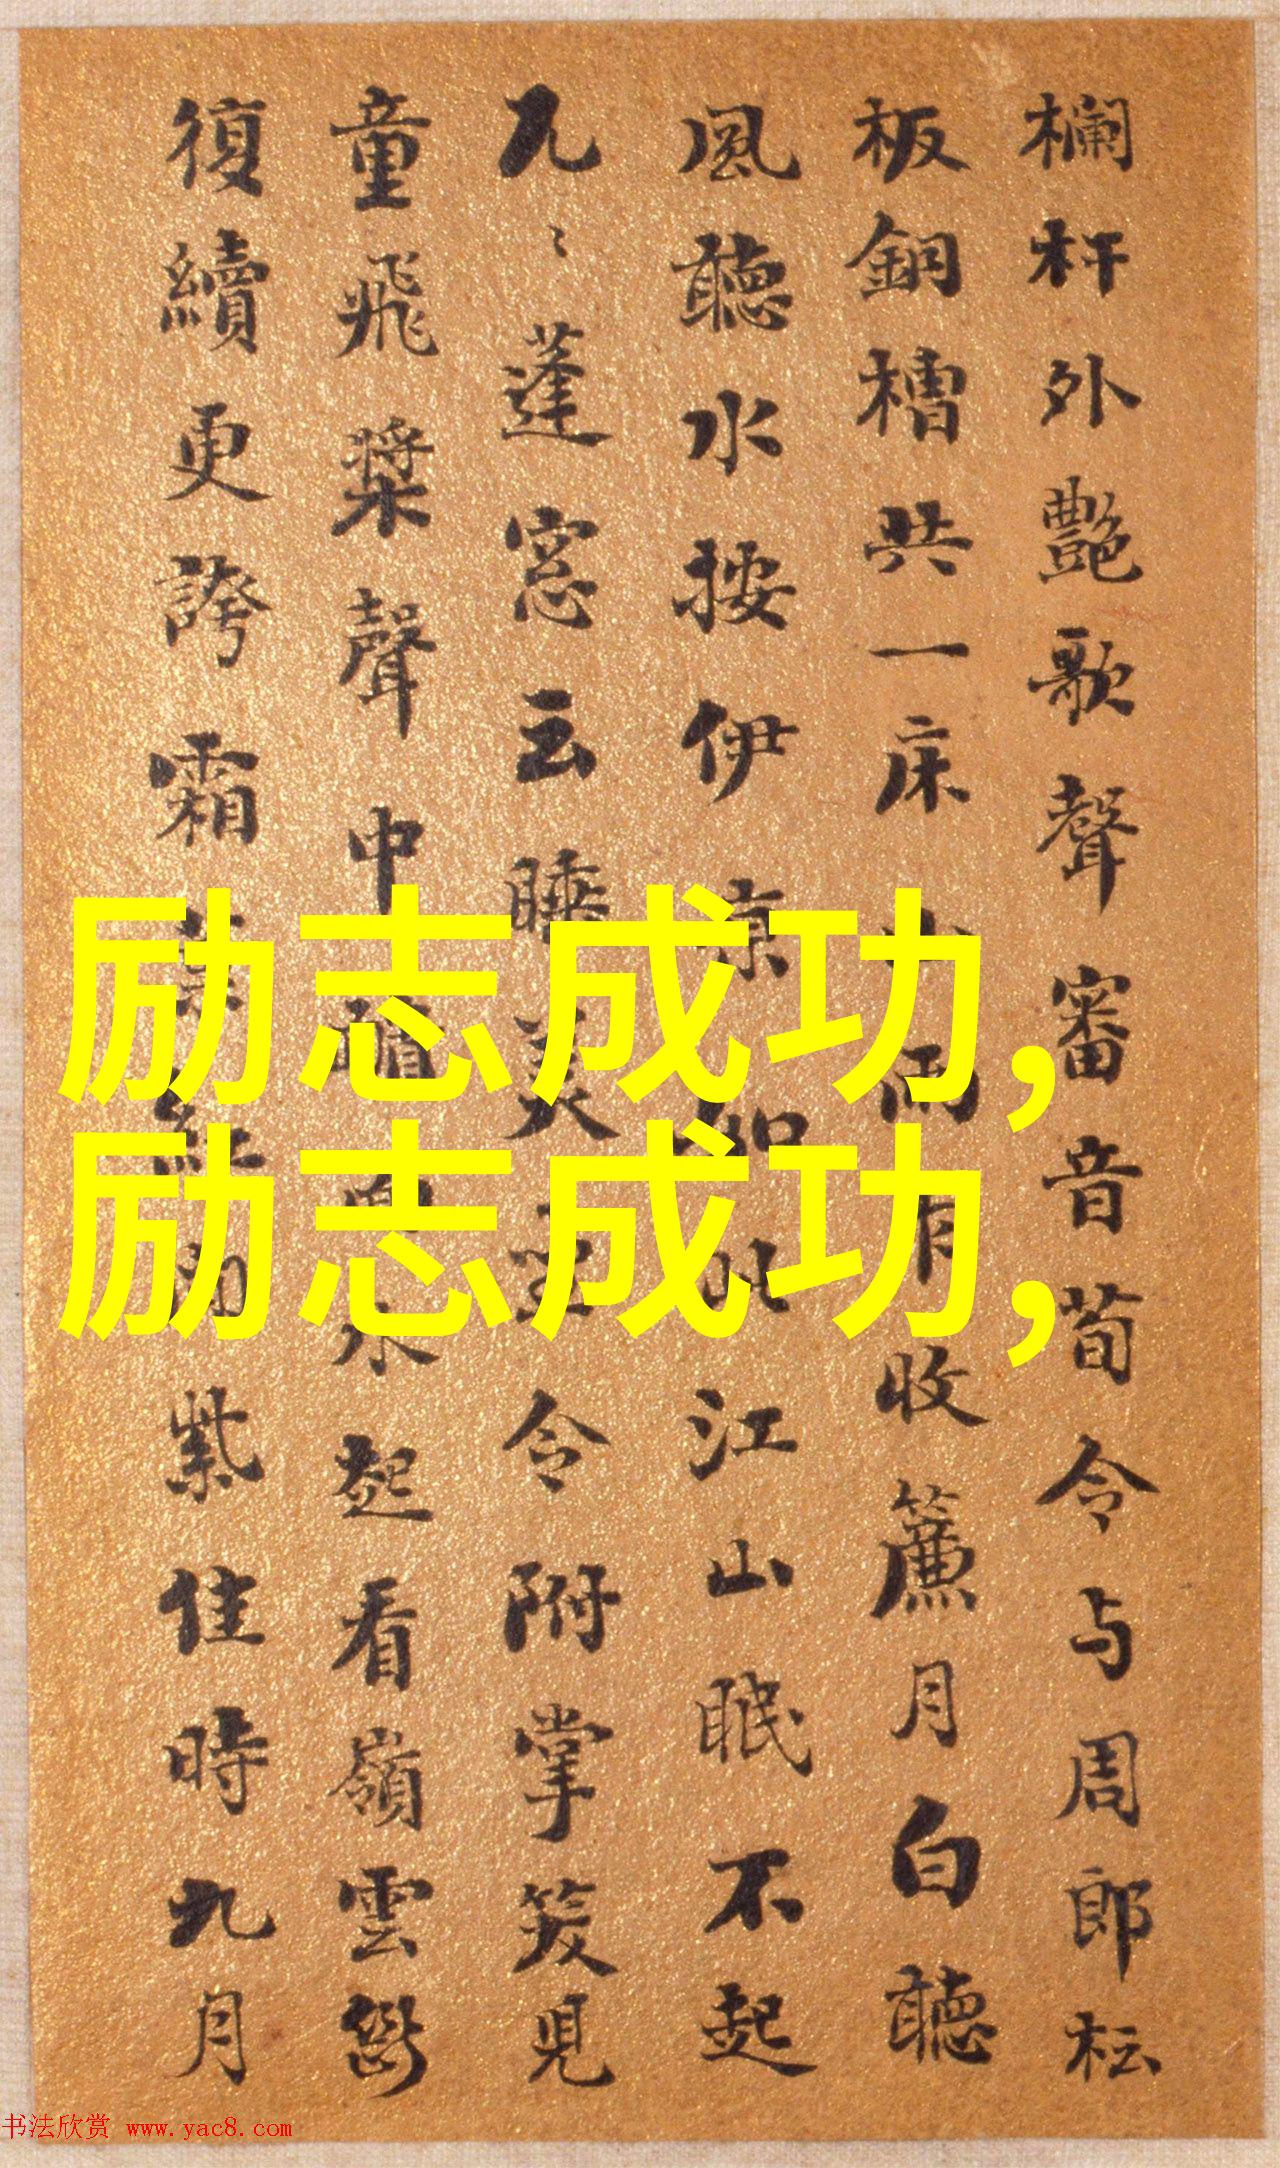 欄杆外艷歌聲審音荀令与周郎杺
板銅槽共一床 雨 收簾月白聽
風聽水按伊 江山眠不起
九〻蓬窓云睡美 令附掌笑見
童飛槳聲中 水起看嶺雲
復續更誇霜 紫佳時九月
励志成功,
励志成功,
书法欣赏 www.yac8.com